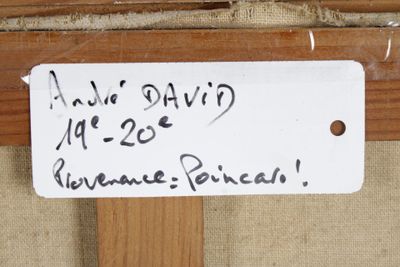 André DAVID
19e-20e
Provenance: Poincaro!.